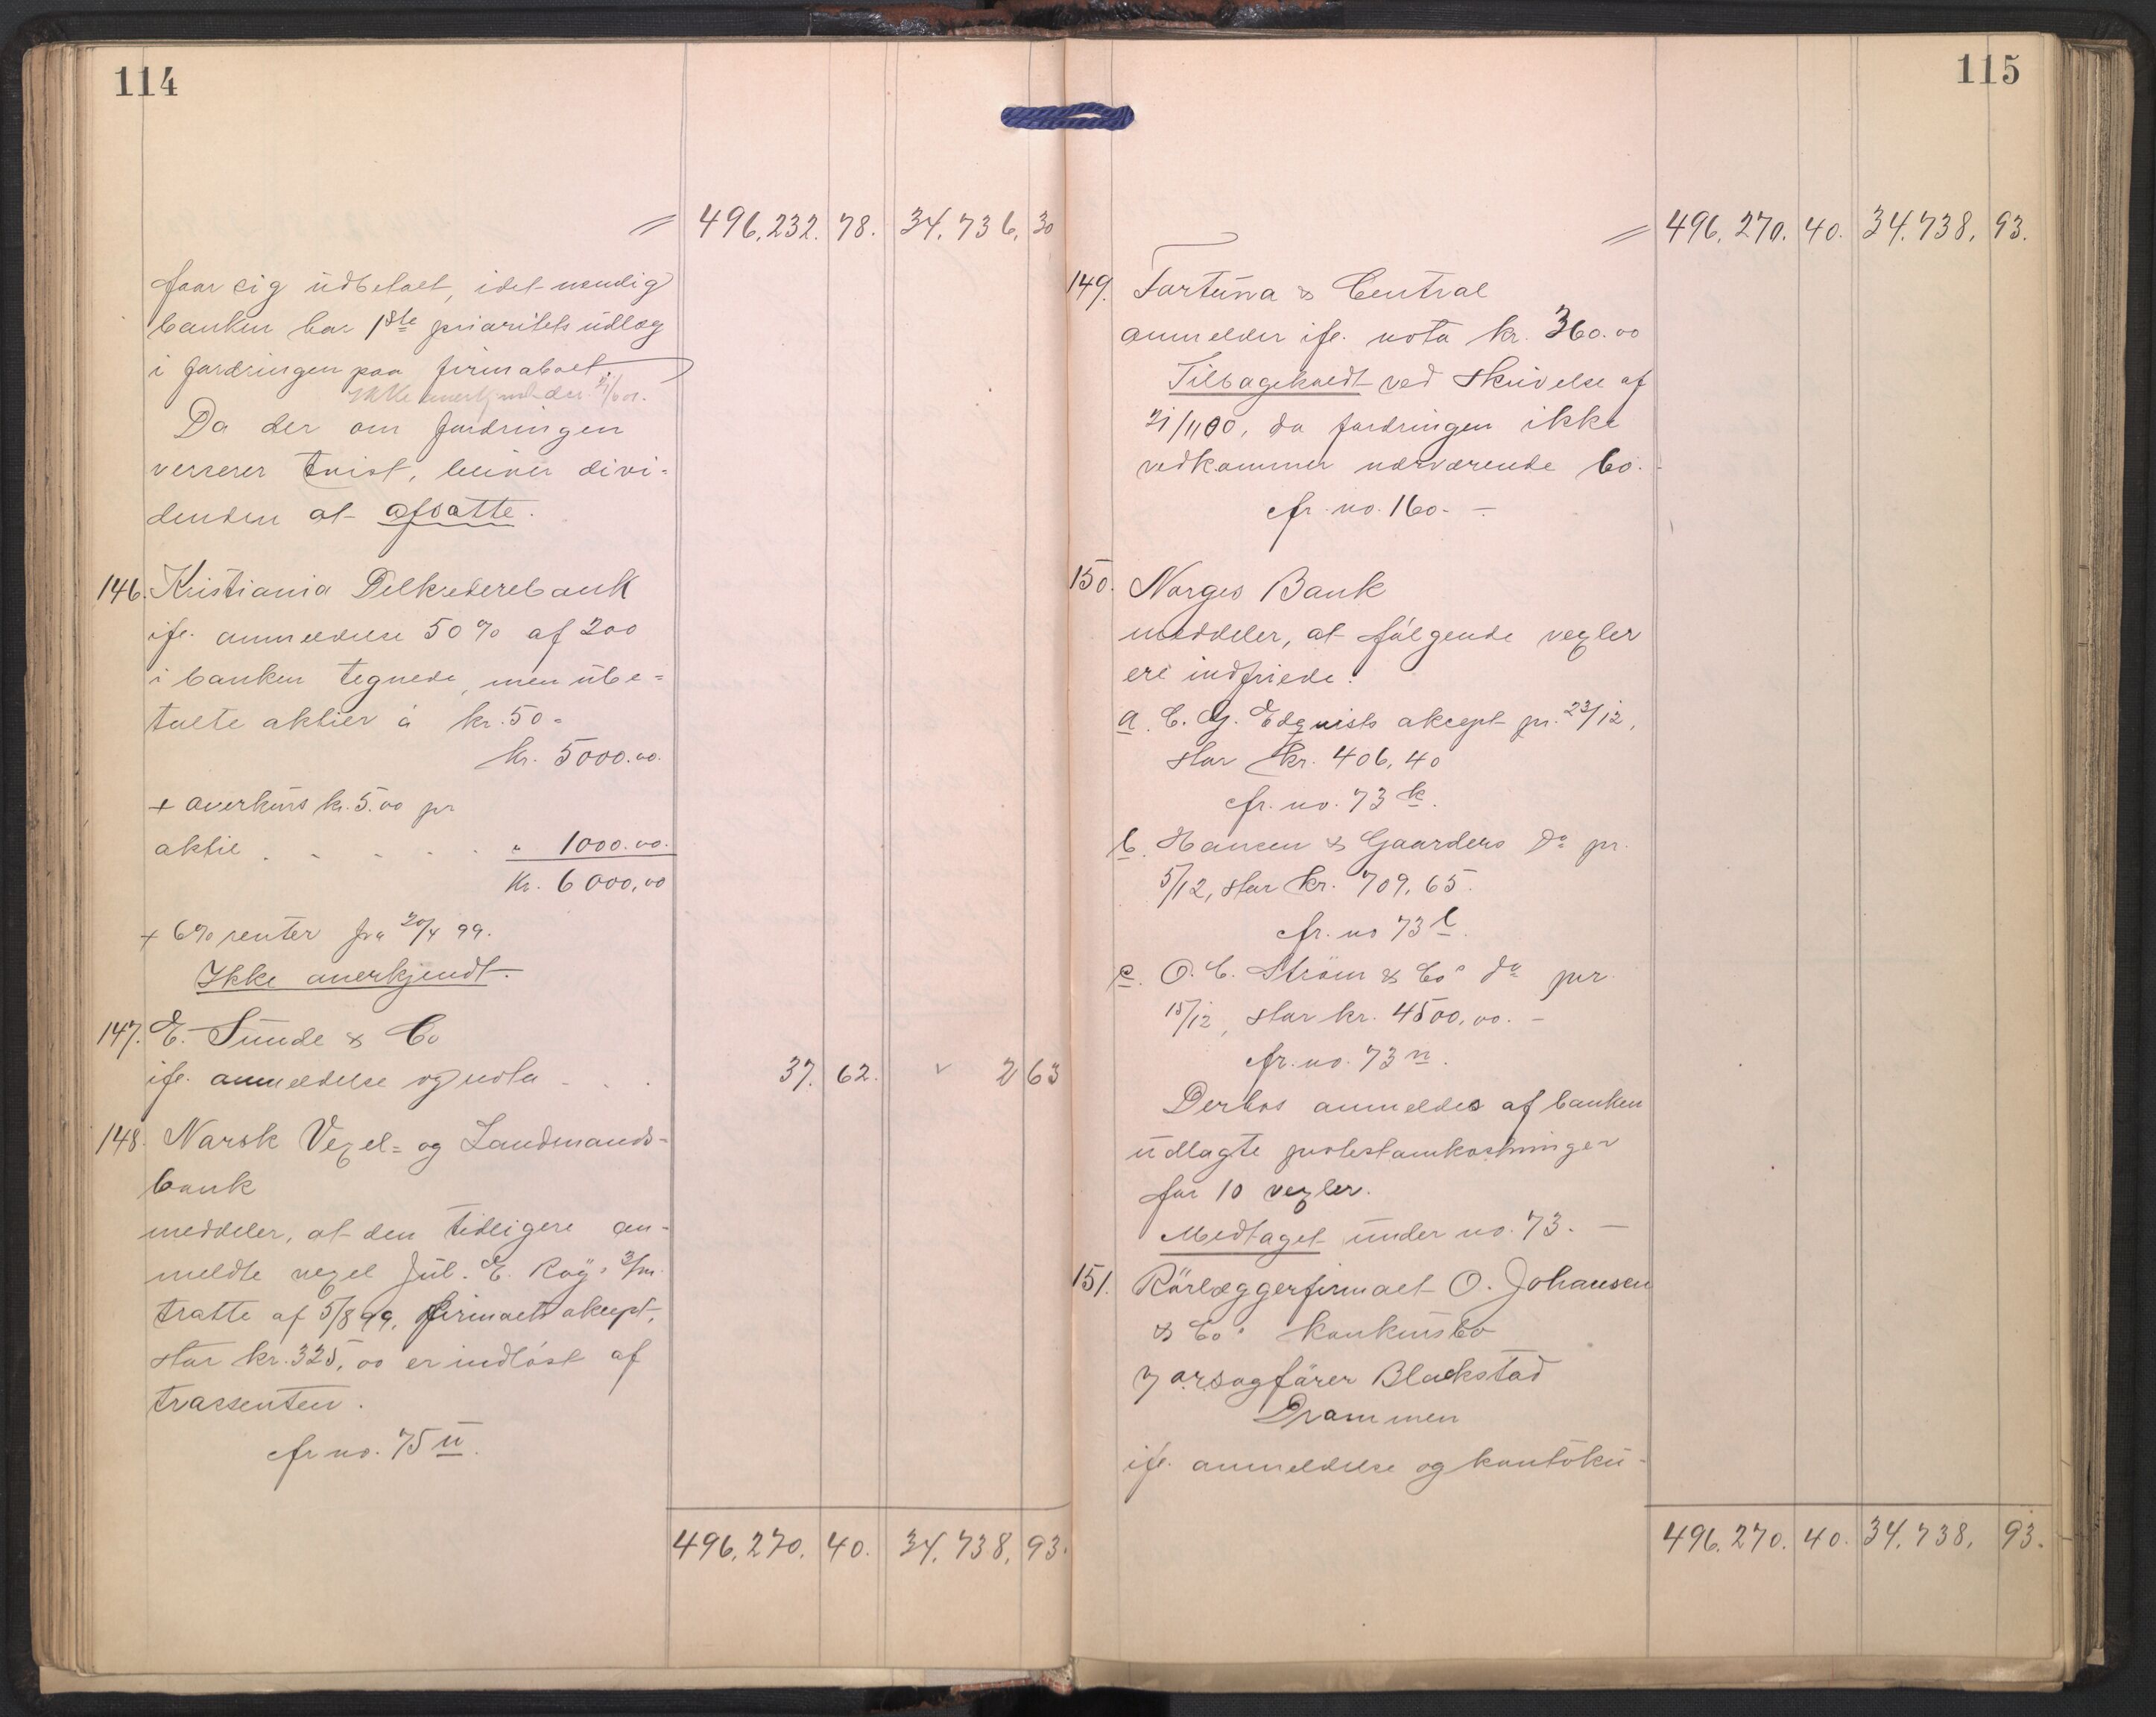 114
496,232. 78. 34,736, 30
faar sig udbetalt, idet nemlig
banken har 1ste prioritets udlæg
i fordringen paa firmaboet.
Ikke anerkjendt
Da der om fordringen
verserer tvist, bliver divi-
denden at afsætte.
146. Kristiania Delkrederebank
ifl. anmeldelse 50% af 200
i banken tegnede, men ube-
talte aktier à kr. 50-
kr. 5000.00.
+ overkurs kr. 5.00 pr
aktie . . . . . " 1000.00.
Kr. 6000,00
+ 6% renter fra 20/4 99.
Ikke anerkjendt.
147. E. Sunde & Co
ifl. anmeldelse og nota - . . 37. 62. v 2 63
148. Norsk Vexel- og Landmands-
bank
meddeler, at den tidligere an-
meldte vexel Jul. E. Roy's 3/m.
tratte af 5/8 99, firmaets akcept,
stor kr. 325,00 er indløst af
trassenten.
cfr no. 75 u.
496,270. 40. 34,738, 93.
115
496,270. 40. 34,738, 93.
149. Fortuna & Central
anmelder ifl. nota kr. 360.00
Tilbagekaldt ved skrivelse af
21/1100, da fordringen ikke
vedkommer nærværende bo.
cfr. no. 160. -
150. Norges Bank
meddeler, at følgende vexler
ere indfriede:
a. C. G. Edquists akcept pr. 23/12,
stor kr. 406,40
cfr. no. 73 k.
b. Hansen & Gaarders do pr.
5/12, stor kr. 709,65.
cfr. no 73 l.
c. O. C. Strøm & Cos do pr.
15/12, stor kr. 4500,00. -
cfr. no. 73 n.
Derhos anmeldes af banken
udlagte protestomkostninger
for 10 vexler.
Medtaget under no. 73. -
151. Rørlæggerfirmaet O. Johansen
& Co's konkursbo
v/ orsagfører Blackstad
Drammen
ifl. anmeldelse og kontoku-
496,270. 40. 34,738, 93.